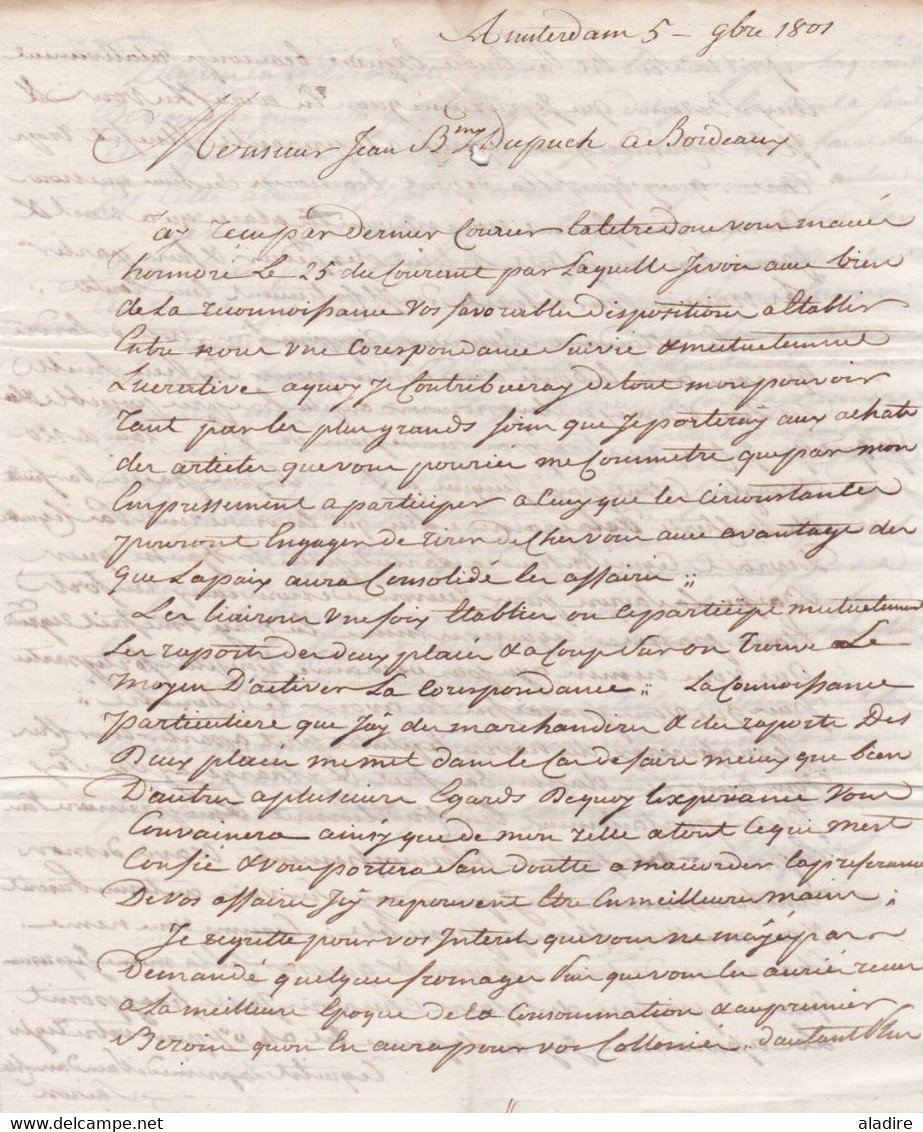 Amsterdam 5 - 9bre 1801
Monsieur Jean Bmy Dupuch a Bordeaux
Jay reçu par dernier Courier la letre dont vous mavéé
honnoré Le 25 du Courent par Laquelle Je voir avec bien
de La reconnoissance Vos favorable disposition a Etablir
Entre nous vne Corespondance Suivie & mutuelement
Lucrative a quoy Je Contribueray de tout mon pouvoir
Tant par les plus grands soins que Je porteray aux achats
des articles que vous pouriéé me Commetre que par mon
Empressement a participer a Ceux que les Circonstances
pouront Engager de tirer de Chez vous avec avantage des
que La paix aura Consolidé les affaires ;;
Les liaisons vne fois Etablies on se participe mutuelement
Les raports des deux places & a Coup sur on Trouve Le
Moyen D'activer La Corespondance ;; La Connoissance
Particuliere que Jay des marchandises & des raports Des
Deux places me met dans le Cas de faire mieux que bien
D'autres a plusieurs Egards De quoy Lexperiance Vous
Convaincra ainsy que de mon zelle a tout Ce qui m'est
Confié & vous portera Sans doutte a maccorder la preferance
De Vos affaires Jy ne pouvent Etre En meilleures mains ;
Je regrette pour vos Interet que vous ne mayéé pas
Demandé quelques fromages Puis que vous les auriéé recus
a La meilleure Epoque de la Consommation & au premier
Besoin quon En aura pour vos Collonies. d'autant Plus
aladire
delcampe.net